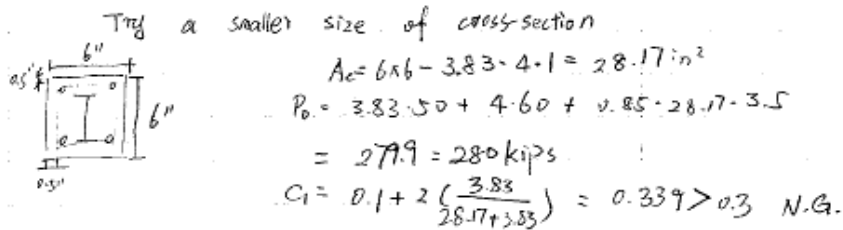 Try a smaller size of cross-section
6"
0.5"
6"
0.5"
Ac = 6x6 - 3.83 - 4·1 = 28.17 in²
Po = 3.83·50 + 4·60 + 0.85·28.17·3.5
= 279.9 = 280 kips
C1 = 0.1 + 2 (3.83 / 28.17+3.83) = 0.339 > 0.3 N.G.